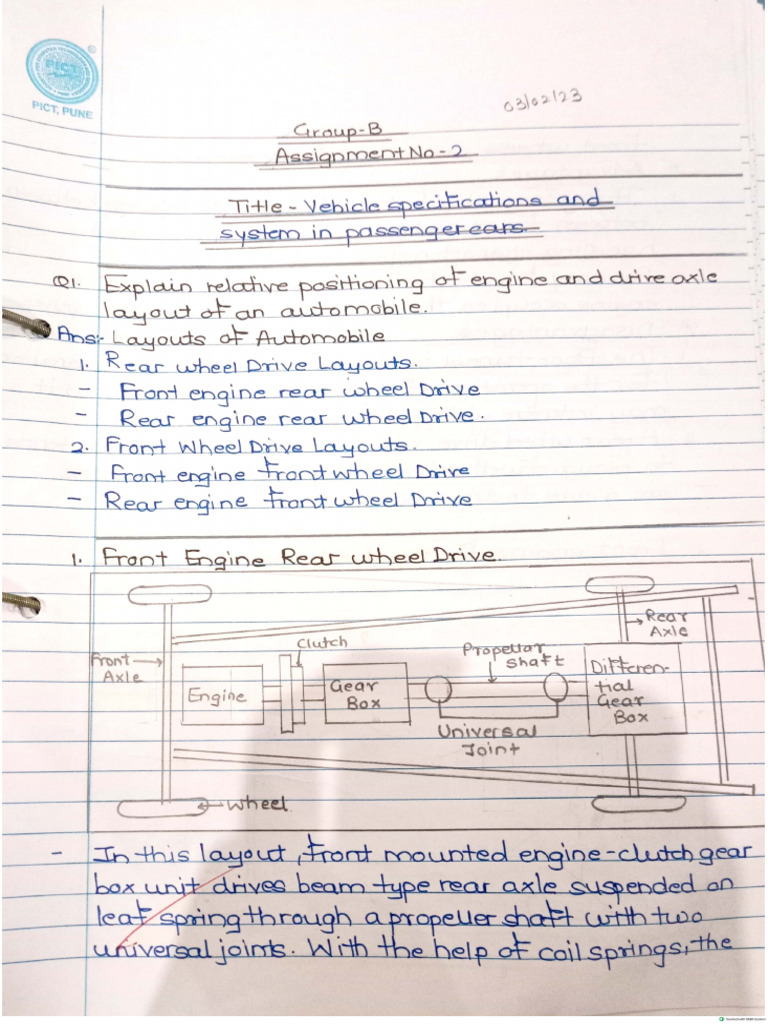 PICT
PICT, PUNE
03/02/23
Group-B
Assignment No - 2
Title - Vehicle specifications and
system in passenger cars
Q1. Explain relative positioning of engine and drive axle
layout of an automobile.
Ans:- Layouts of Automobile
1. Rear wheel Drive Layouts.
- Front engine rear wheel Drive
- Rear engine rear wheel Drive.
2. Front Wheel Drive Layouts.
- Front engine front wheel Drive
- Rear engine front wheel Drive
1. Front Engine Rear wheel Drive.
Rear
Axle
Clutch
Propellar
shaft
Front
Axle
Engine
Gear
Box
Differen-
tial
Gear
Box
Universal
Joint
Wheel
- In this layout, front mounted engine-clutch gear
box unit drives beam type rear axle suspended on
leaf spring through a propeller shaft with two
universal joints. With the help of coil springs, the